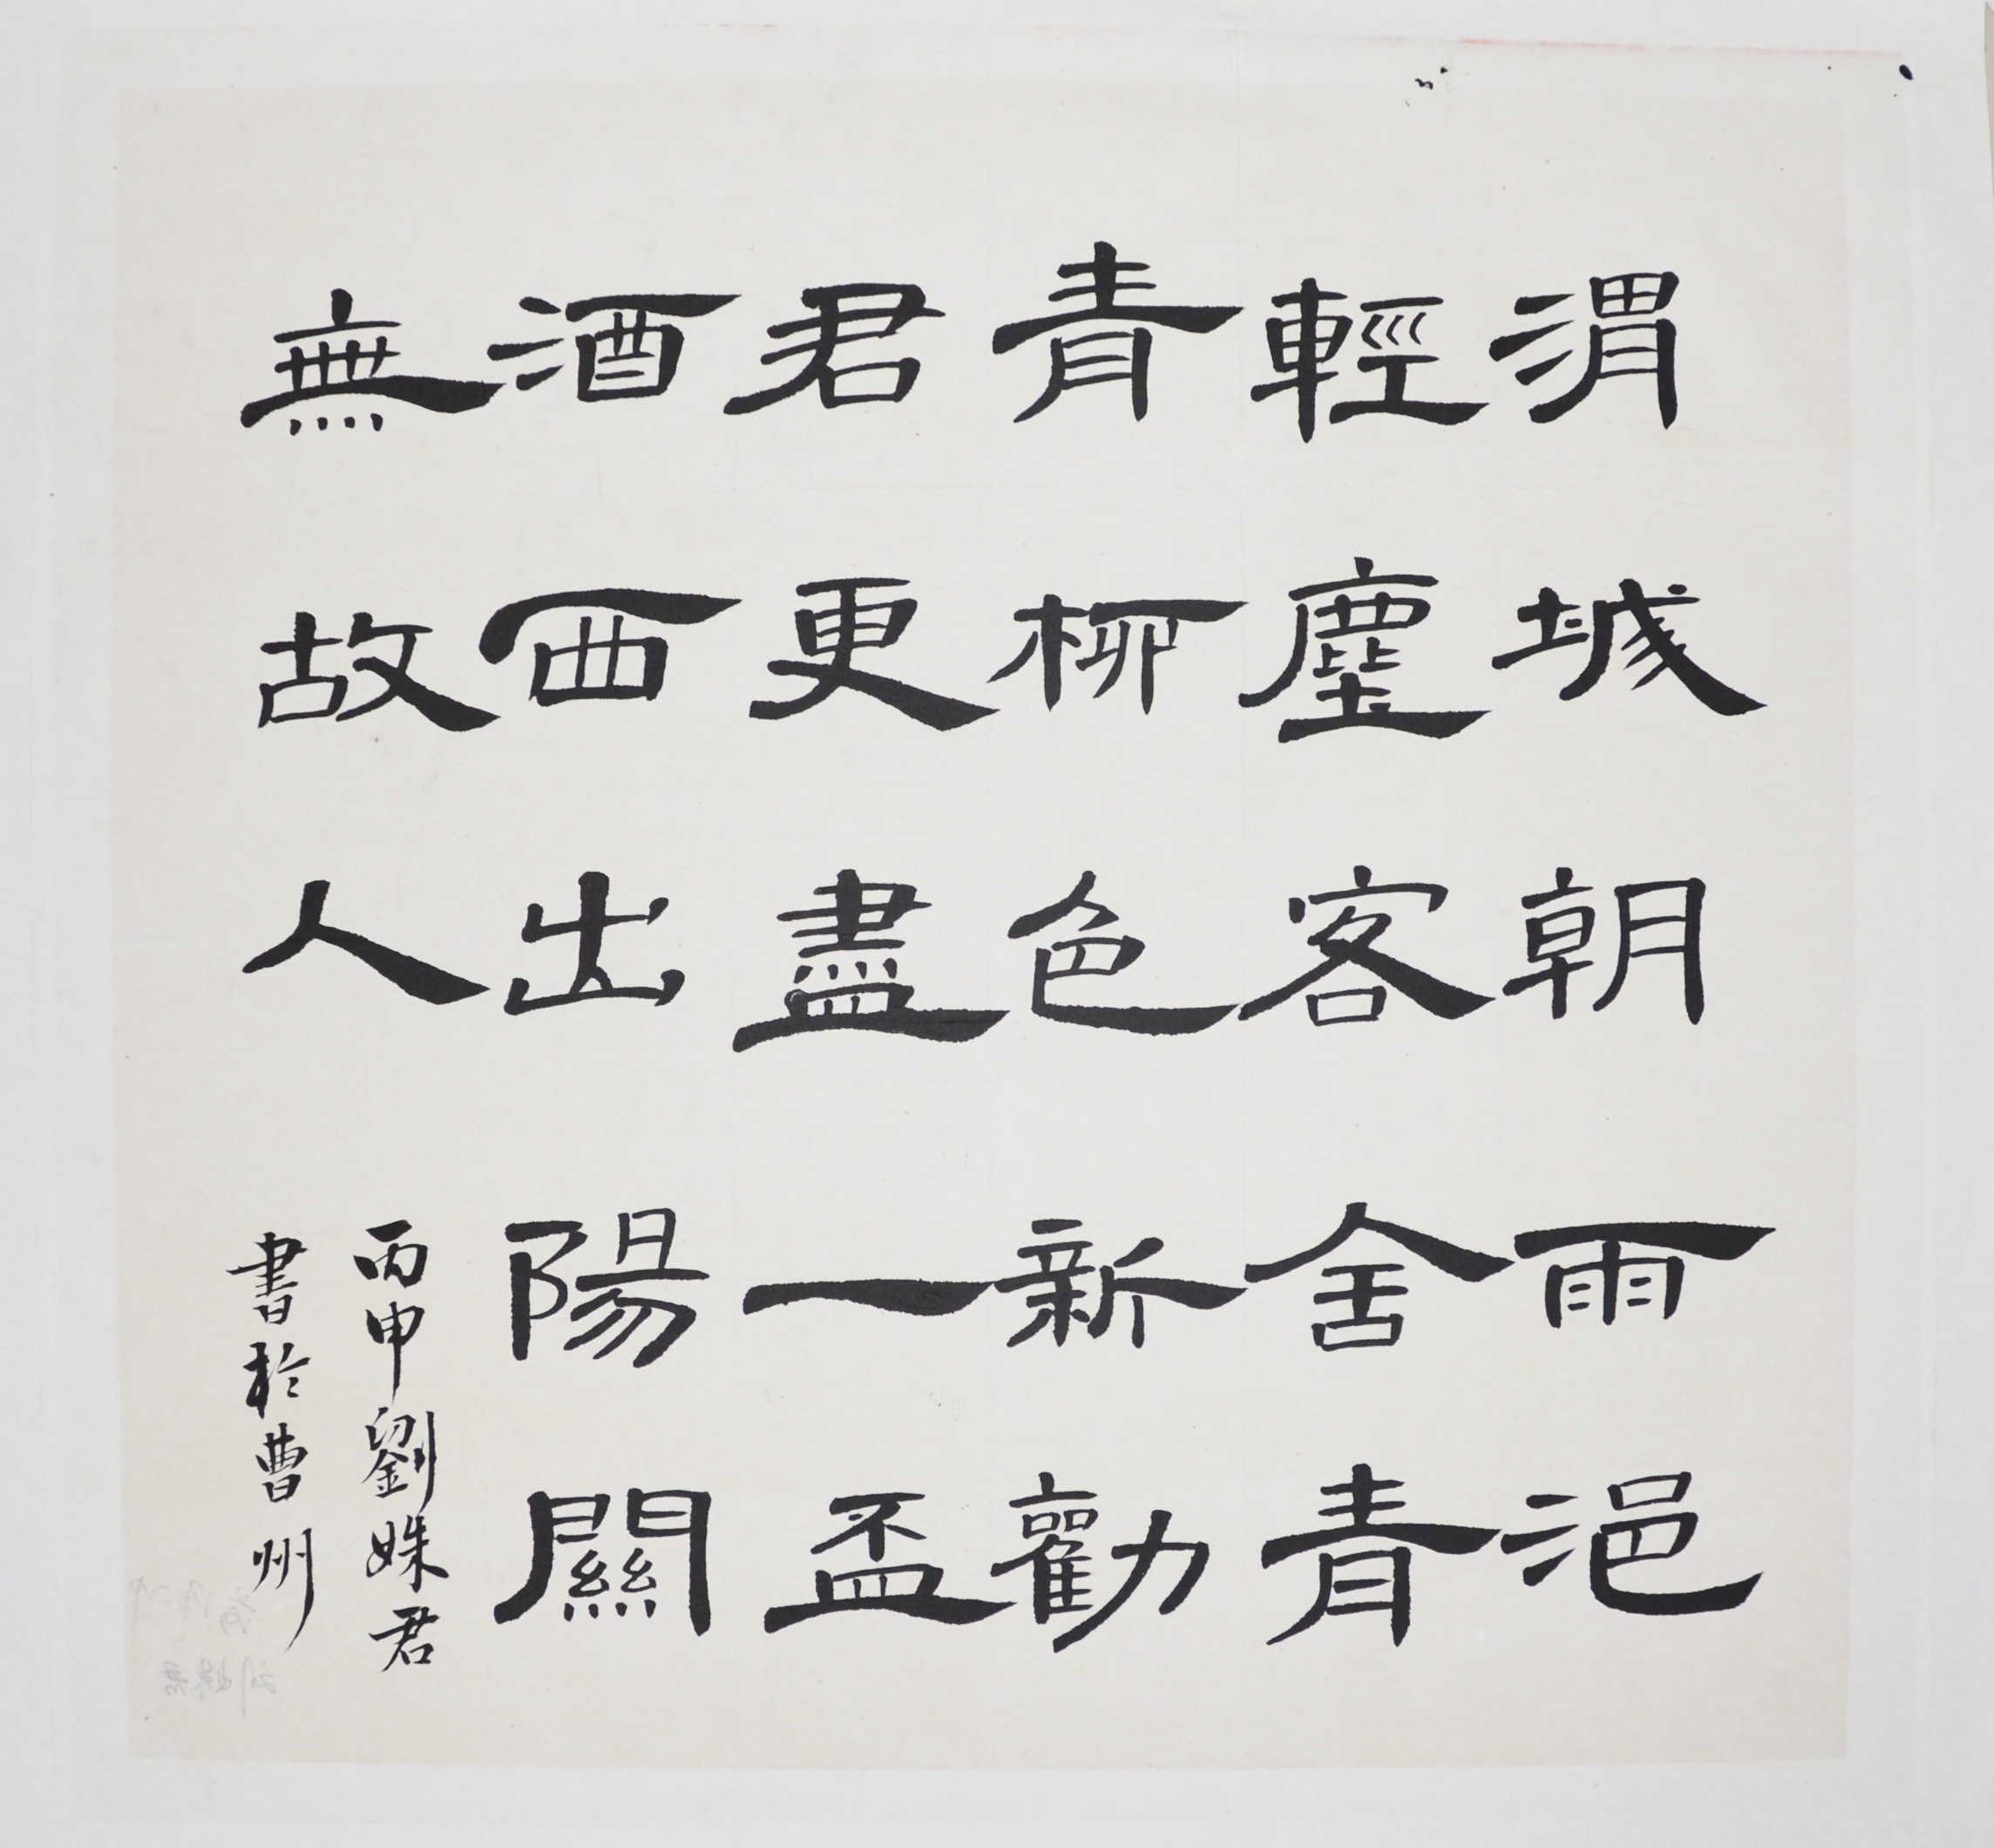 渭城朝雨浥
輕塵客舍青
青柳色新勸
君更盡一盃
酒西出陽關
無故人
丙申劉姝君
書於曹州